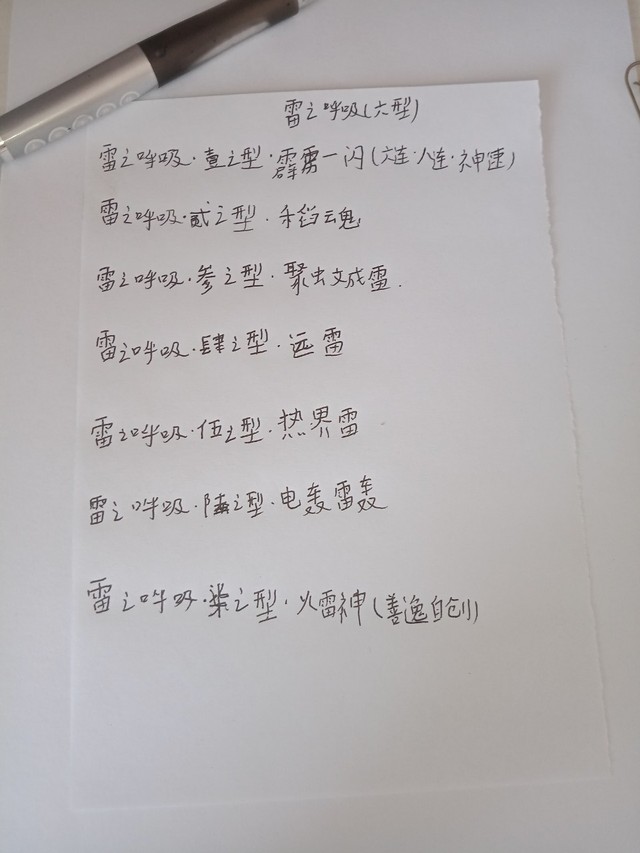 雷之呼吸(六型)
雷之呼吸·壹之型·霹雳一闪(六连·八连·神速)
雷之呼吸·贰之型·稻魂
雷之呼吸·参之型·聚蚊成雷.
雷之呼吸·肆之型·远雷
雷之呼吸·伍之型·热界雷
雷之呼吸·陆之型·电轰雷轰
雷之呼吸·柒之型·火雷神(善逸自创)